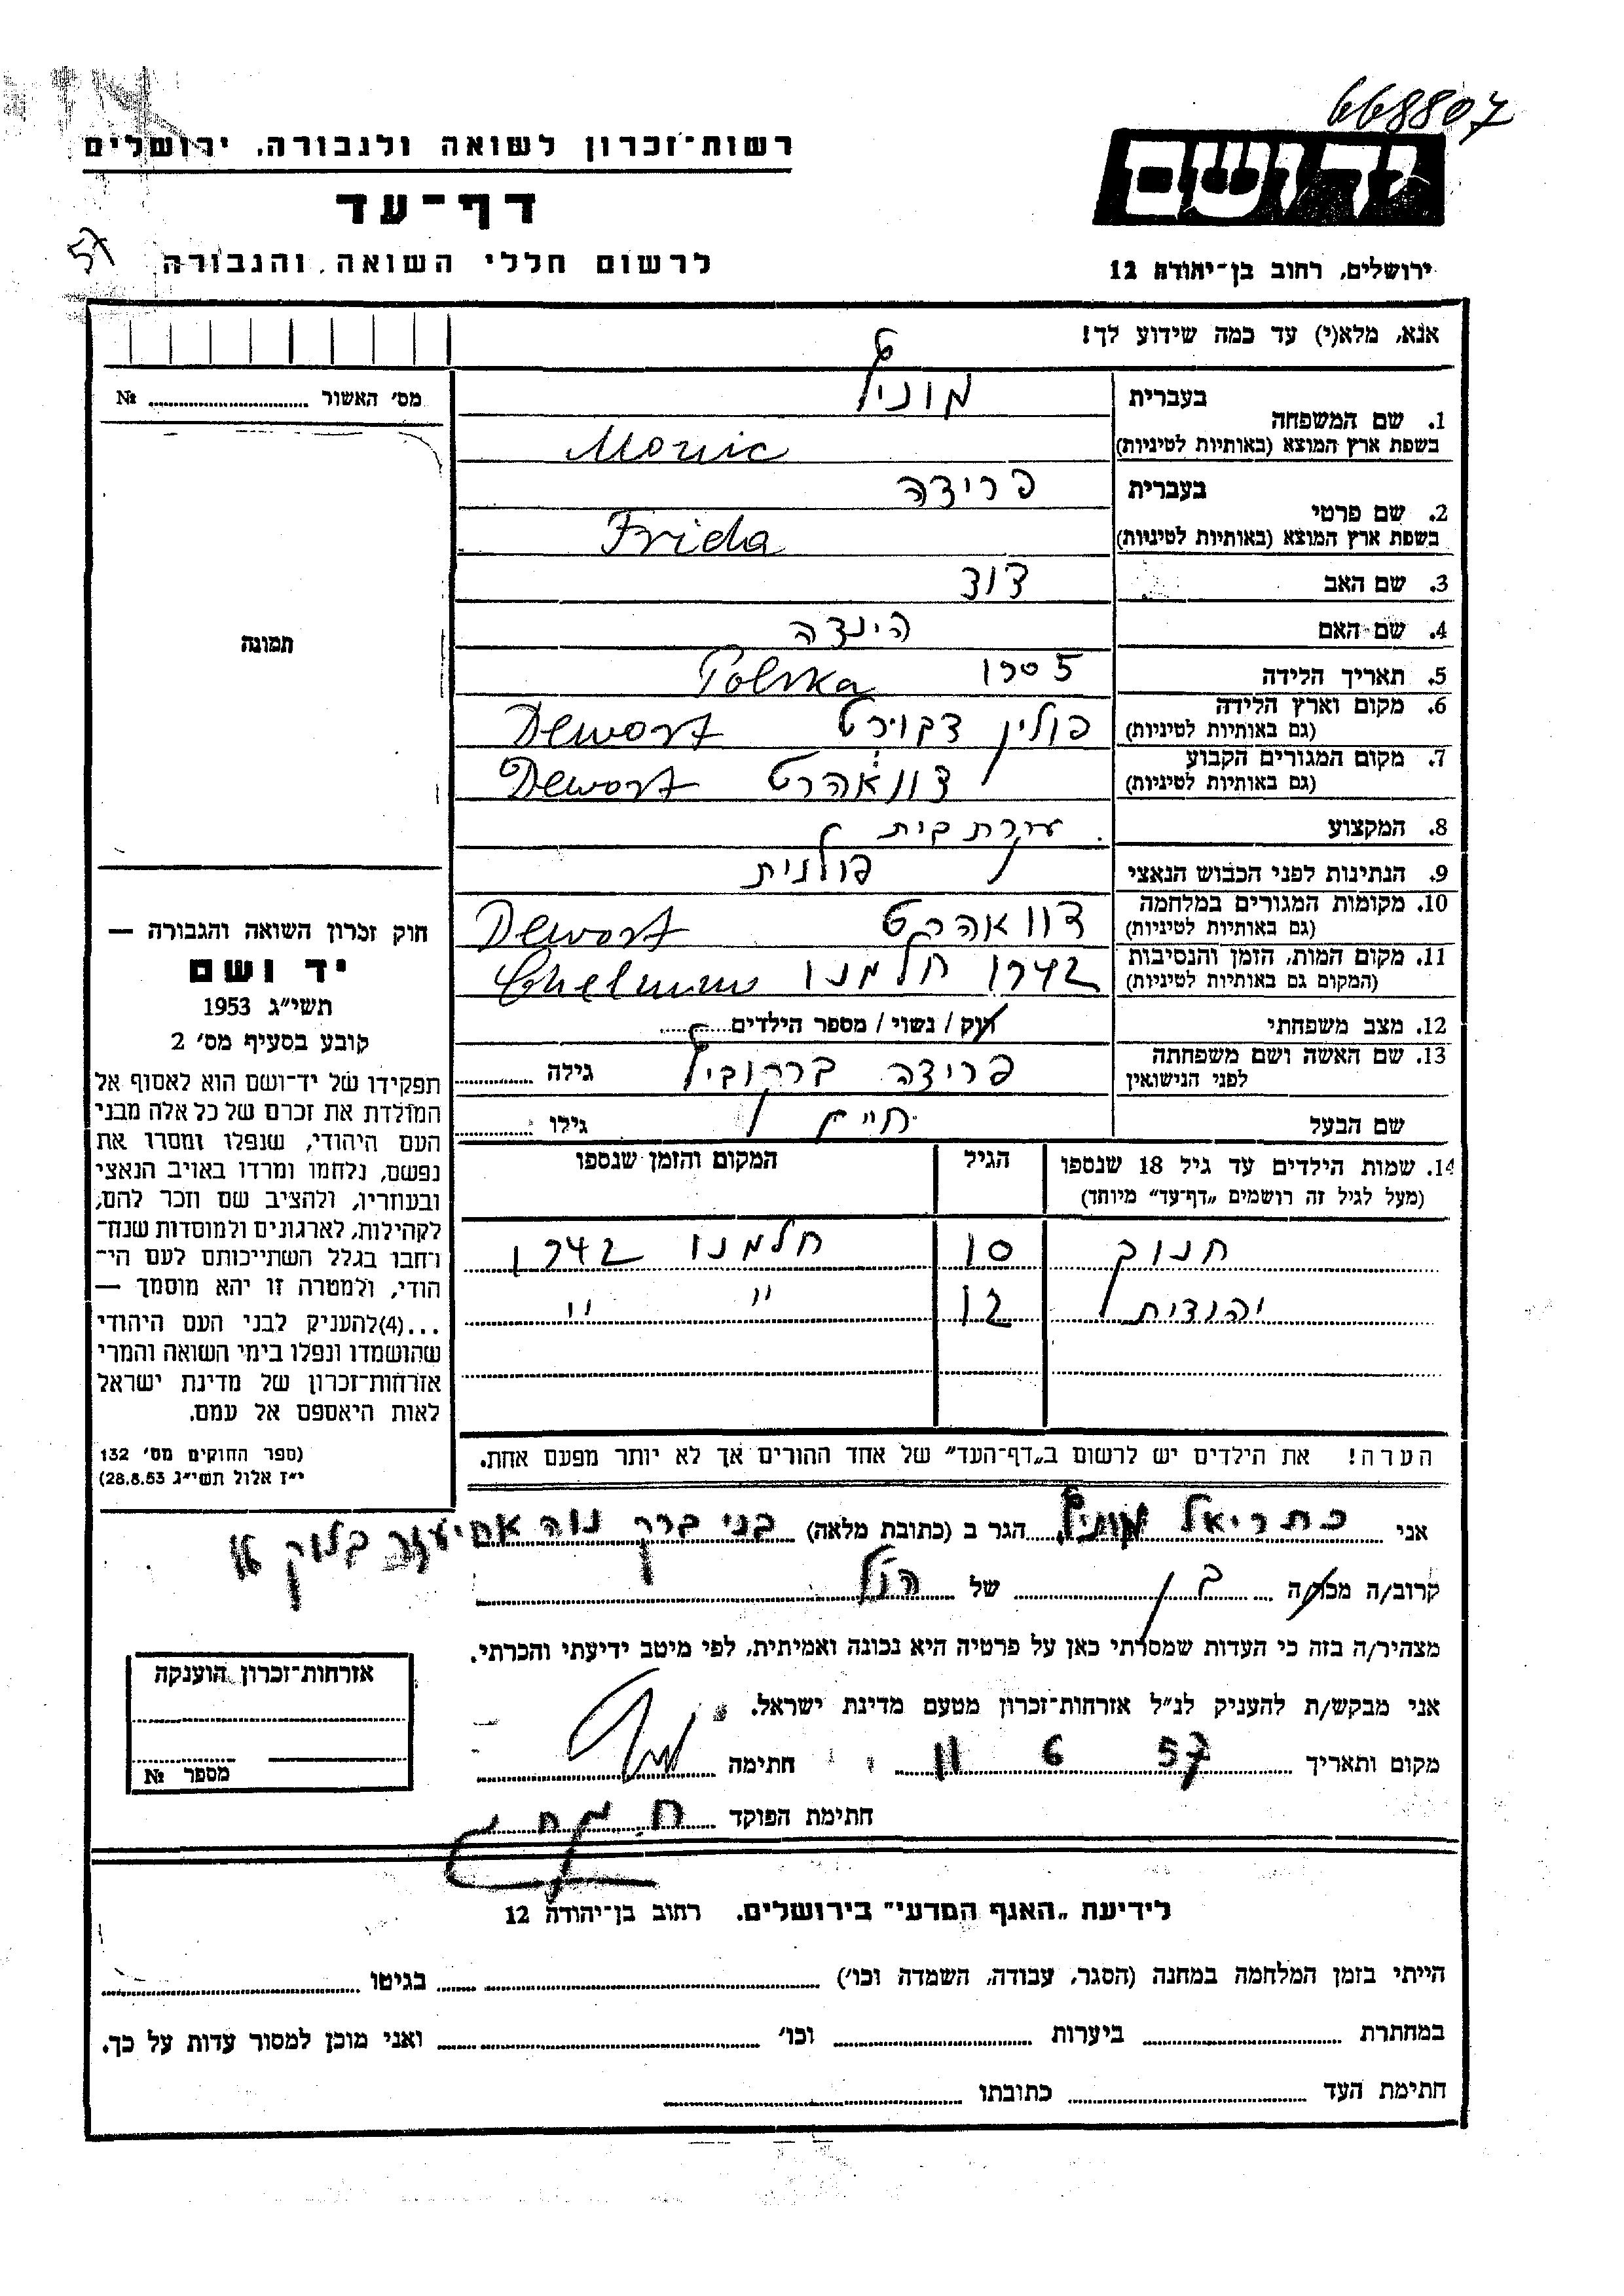 668807
רשות־זכרון לשואה ולגבורה, ירושלים
יד ושם
דף־עד
57
לרשום חללי השואה והגבורה
ירושלים, רחוב בן־יהודה 12
אנא, מלא(י) עד כמה שידוע לך!
מס׳ האשור № 
1. שם המשפחה
בעברית
בשפת ארץ המוצא (באותיות לטיניות)
Monic
2. שם פרטי
בעברית פרידה
בשפת ארץ המוצא (באותיות לטיניות) Frida
3. שם האב דוד
4. שם האם הינדה
5. תאריך הלידה Polska
6. מקום וארץ הלידה פולין Dewort
(גם באותיות לטיניות)
7. מקום המגורים הקבוע Dewort
(גם באותיות לטיניות)
8. המקצוע עקרת בית
9. הנתינות לפני הכבוש הנאצי פולנית
10. מקומות המגורים במלחמה Dewort
(גם באותיות לטיניות)
11. מקום המות, הזמן והנסיבות 1942 חלמנו
(המקום גם באותיות לטיניות)
12. מצב משפחתי רוק / נשוי / מספר הילדים
13. שם האשה ושם משפחתה פרידה גילה
לפני הנישואין
שם הבעל חיים גילו
14. שמות הילדים עד גיל 18 שנספו הגיל המקום והזמן שנספו
(מעל לגיל זה רושמים „דף־עד״ מיוחד)
חנוך 10 חלמנו 1942
יהודית 12 " "
הערה! את הילדים יש לרשום ב„דף־העד״ של אחד ההורים אך לא יותר מפעם אחת.
תמונה
חוק זכרון השואה והגבורה —
יד ושם
תשי״ג 1953
קובע בסעיף מס׳ 2
תפקידו של יד־ושם הוא לאסוף אל
המולדת את זכרם של כל אלה מבני
העם היהודי, שנפלו ומסרו את
נפשם, נלחמו ומרדו באויב הנאצי
ובעוזריו, ולהציב שם וזכר להם,
לקהילות, לארגונים ולמוסדות שנח־
רחבו בגלל השתייכותם לעם הי־
הודי, ולמטרה זו יהא מוסמך —
...(4)להעניק לבני העם היהודי
שהושמדו ונפלו בימי השואה והמרי
אזרחות־זכרון של מדינת ישראל
לאות היאספם אל עמם.
(ספר החוקים מס׳ 132
י״ז אלול תשי״ג 28.8.53)
אני כתריאל הגר ב (כתובת מלאה) בני ברק נוה אחיעזר בלוק
קרוב/ה מכר/ה בן של הנ״ל
מצהיר/ה בזה כי העדות שמסרתי כאן על פרטיה היא נכונה ואמיתית, לפי מיטב ידיעתי והכרתי.
אני מבקש/ת להעניק לנ״ל אזרחות־זכרון מטעם מדינת ישראל.
מקום ותאריך 11 6 57 חתימה
חתימת הפוקד
אזרחות־זכרון הוענקה
מספר №
לידיעת „האגף המדעי״ בירושלים. רחוב בן־יהודה 12
הייתי בזמן המלחמה במחנה (הסגר, עבודה, השמדה וכו׳) בגיטו
במחתרת ביערות וכו׳ ואני מוכן למסור עדות על כך.
חתימת העד כתובתו